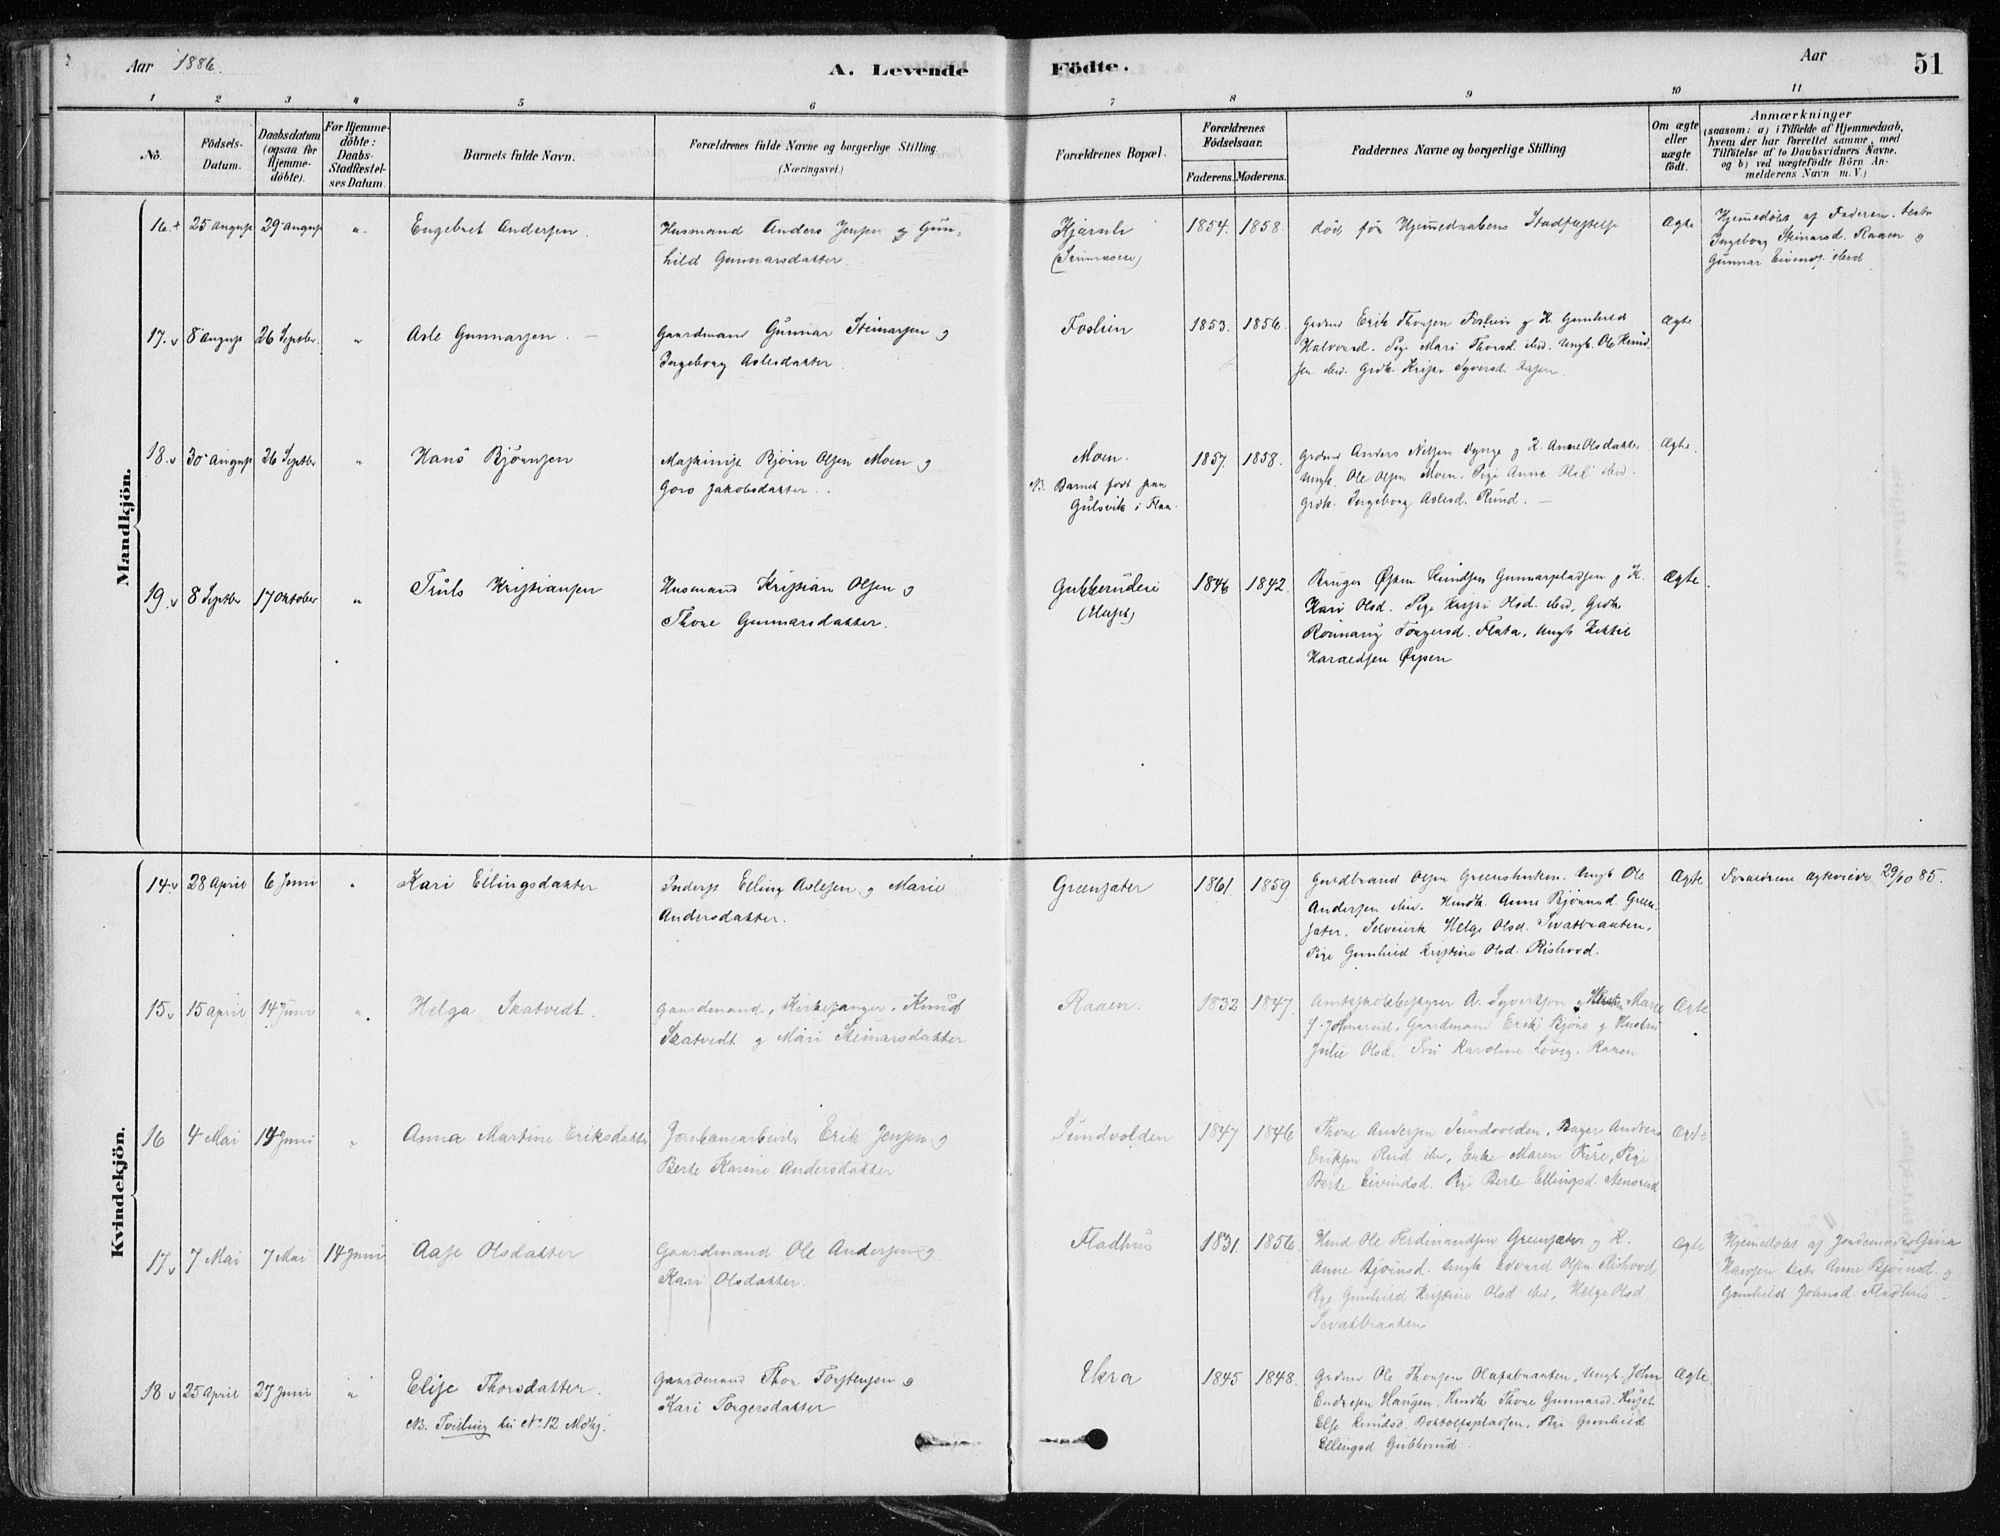 Aar 1886.
A. Levende Födte.
Aar
51
1 2 3 4 5 6 7 8 9 10 11
No.
Födsels-
Datum.
Daabsdatum
(ogsaa for
Hjemme-
döbte).
For Hjemme-
döbte:
Daabs-
Stadfæstel-
ses Datum.
Barnets fulde Navn.
Forældrenes fulde Navne og borgerlige Stilling
(Næringsvei.)
Forældrenes Bopæl.
Forældrenes
Födselsaar.
Faderens. Moderens.
Faddernes Navne og borgerlige Stilling
Om ægte
eller
uægte
födt.
Anmærkninger
(saasom: a) i Tilfælde af Hjemmedaab,
hvem der har forrettet samme, med
Tilföielse af to Daabsvidners Navne,
og b) ved uægtefödte Börn An-
melderens Navn m. V.)
Mandkjön.
16.+ 25 August 29 August " Engebret Andersen. Husmand Anders Jensen og Gun-
hild Gunnarsdatter. 1854. 1858. død før Hjemmedaabens Stadfæstelse Ægte
Hjemmedøbt af Faderen. Testes
Ingeborg Steinarsd. Raaen og
Gunnar
17. v 8 August 26 Septbr. " Asle Gunnarsen. Gaardmand Gunnar Steinarsen og
Ingeborg Aslesdatter. Foslien 1853. 1856. Grdmd Erik Thorsen Foslien og K. Gunhild
Halvorsd. Pige Mari Thorsd. ibid. Ungk. Ole
sen ibid. Grdk. Syversd. Ægte
18. v 30 August 26 Septbr " Hans Bjørnsen Maskinist Bjørn Olsen Moen og
Goro Jakobsdatter. Moen.
NB. Barnet født paa
Gulsvik i Flaa. 1857. 1858. Grdmd Anders Nilsen og K. Anne Olsdatter
Ungk. Ole Olsen Moen. Pige Anne Olsd ibid.
Grdk. Ingeborg Aslesd. Rund. Ægte.
19. v 8 Septbr 17 Oktober " Truls Kristiansen Husmand Kristian Olsen og
Thone Gunnarsdatter. Gubberudeie
1846 1842. Bruger Knudsen Gunnarspladsen og K.
Kari Olsd. Pige Olsd. ibid, Grdk
Torgersd. Flata, Ungk Kittil
Haraldsen Ægte.
Kvindekjön.
14. v 28 April 6 Juni " Kari Ellingsdatter Inderst Elling Aslesen og Marie
Andersdatter. Grensjøter 1861. 1859 Guldbrand Olsen Ungk Ole
Andersen ibid. Anne Bjørnsd Gren-
Helge Olsd.
Pige Gunhild Kristine Olsd. Rishovd. Ægte Forældrene Ægteviede 29/10 85.
15. v 15 April 14 Juni " Helga Skatvedt. Gaardmand, Kirkesanger, Knud
Skatvedt og Mari Steinarsdatter Raaen. 1832 1847. Amtsskolebestyrer A. Syvertsen og Marie
Gaardmand Erik Bjøre og Hustru
Julie Olsd. Karoline Raaen Ægte
16 4 Mai 14 Juni " Anna Martine Eriksdatter Jernbanearbeider Erik Jensen og
Berte Karine Andersdatter Sundvolden 1847 1846 Thone Andersen Sundvolden, Andreas
Eriksen Rud ibid, Enke Maren Pige
Berte Eivindsd. Pige Berte Ellingsd. Ægte
17. v 7 Mai 7 Mai 14 Juni Aase Olsdatter Gaardmand Ole Andersen og
Kari Olsdatter. Fladhus 1831. 1856. Hmd Ole Ferdinandsen Grensjøter og K.
Anne Bjørnsd. Ungk Edvard Olsen Rishovd
Pige Gunhild Kristine Olsd ibid, Helge Olsd
Ægte Hjemmedøbt af Jordemoder
Hansen, Testes Anne Bjørnsd. og
Gunhild Johnsd. Fladhus.
18 v 25 April 27 Juni " Elise Thorsdatter.
NB. Tvilling til No 12 Mdkj. Gaardmand Thor Torstensen og
Kari Torgersdatter Ekra 1845 1848. Grdmd Ole Thorsen Ungk. John
Endresen Haugen, Thone Gunnarsd.
Else Knudsd. Pige Gunhild
Ellingsd Gubberud. Ægte.